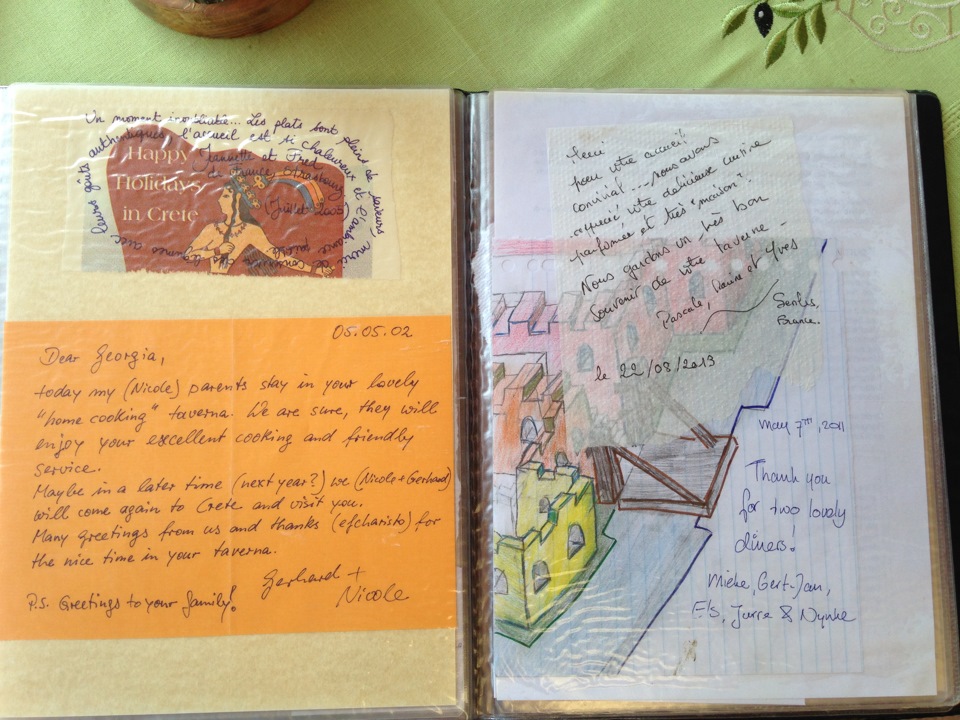 Un moment inoubliable... Les plats sont pleins de saveurs
leurs goûts authentiques, l'accueil est si chaleureux et l'ambiance
Jeannette et Fred
de France, Strasbourg
(Juillet 2005)
Happy
Holidays
in Crete
05.05.02
Dear Georgia,
today my (Nicole) parents stay in your lovely
"home cooking" taverna. We are sure, they will
enjoy your excellent cooking and friendly
service.
Maybe in a later time (next year?) we (Nicole+Gerhard)
will come again to Crete and visit you.
Many greetings from us and thanks (efcharisto) for
the nice time in your taverna.
Gerhard +
Nicole
P.S. Greetings to your family!
Merci
pour votre accueil
convivial... nous avons
apprécié votre délicieuse cuisine
parfumée et très "maison".
Nous gardons un très bon
souvenir de votre taverne -
Pascale, et Yves
Senlis,
France.
le 22/08/2013
May 7TH, 2011
Thank you
for two lovely
diners!
Mieke, Gert-Jan,
Els, Jurre & Nynke